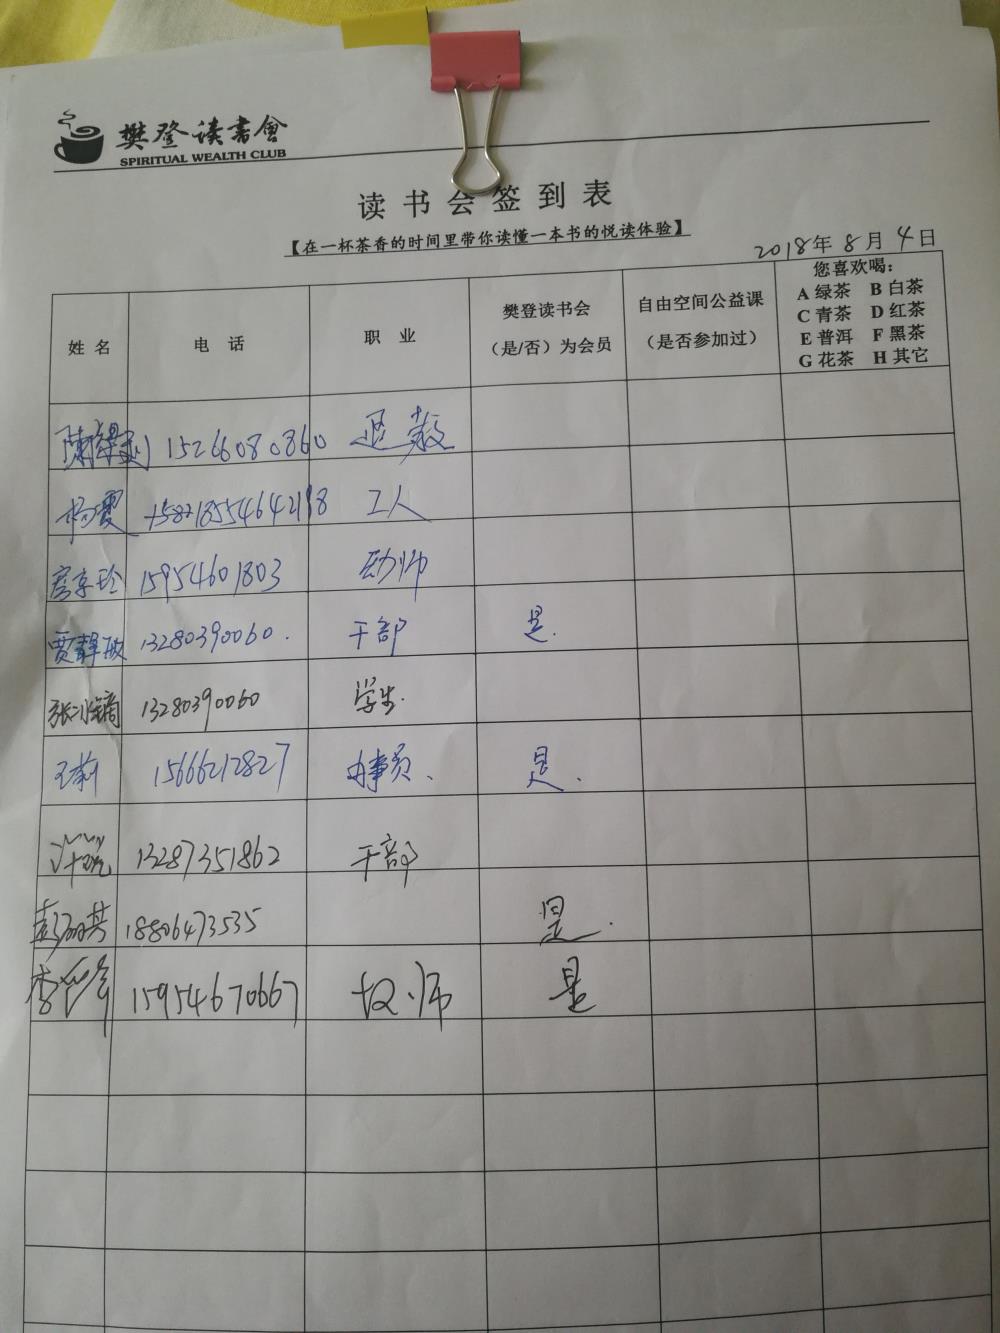 樊登读书会
SPIRITUAL WEALTH CLUB
读书会签到表
【在一杯茶香的时间里带你读懂一本书的悦读体验】
2018年8月4日
姓名 电话 职业 樊登读书会（是/否）为会员 自由空间公益课（是否参加过） 您喜欢喝：
A 绿茶 B 白茶
C 青茶 D 红茶
E 普洱 F 黑茶
G 花茶 H 其它
15266080860
杨霞 工人
15954601803
贾静敏 13280390060. 干部 是.
13280390060 学生.
王莉 15666212827 办事员、 是.
13287351862 干部
18806473535 是.
15954670667 是